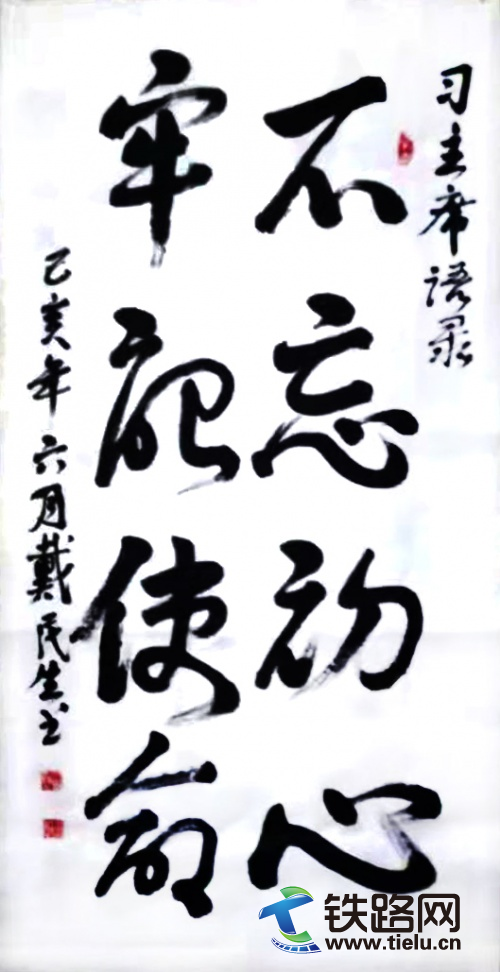 习主席语录
不忘初心
牢记使命
己亥年六月戴民生书
铁路网
www.tielu.cn